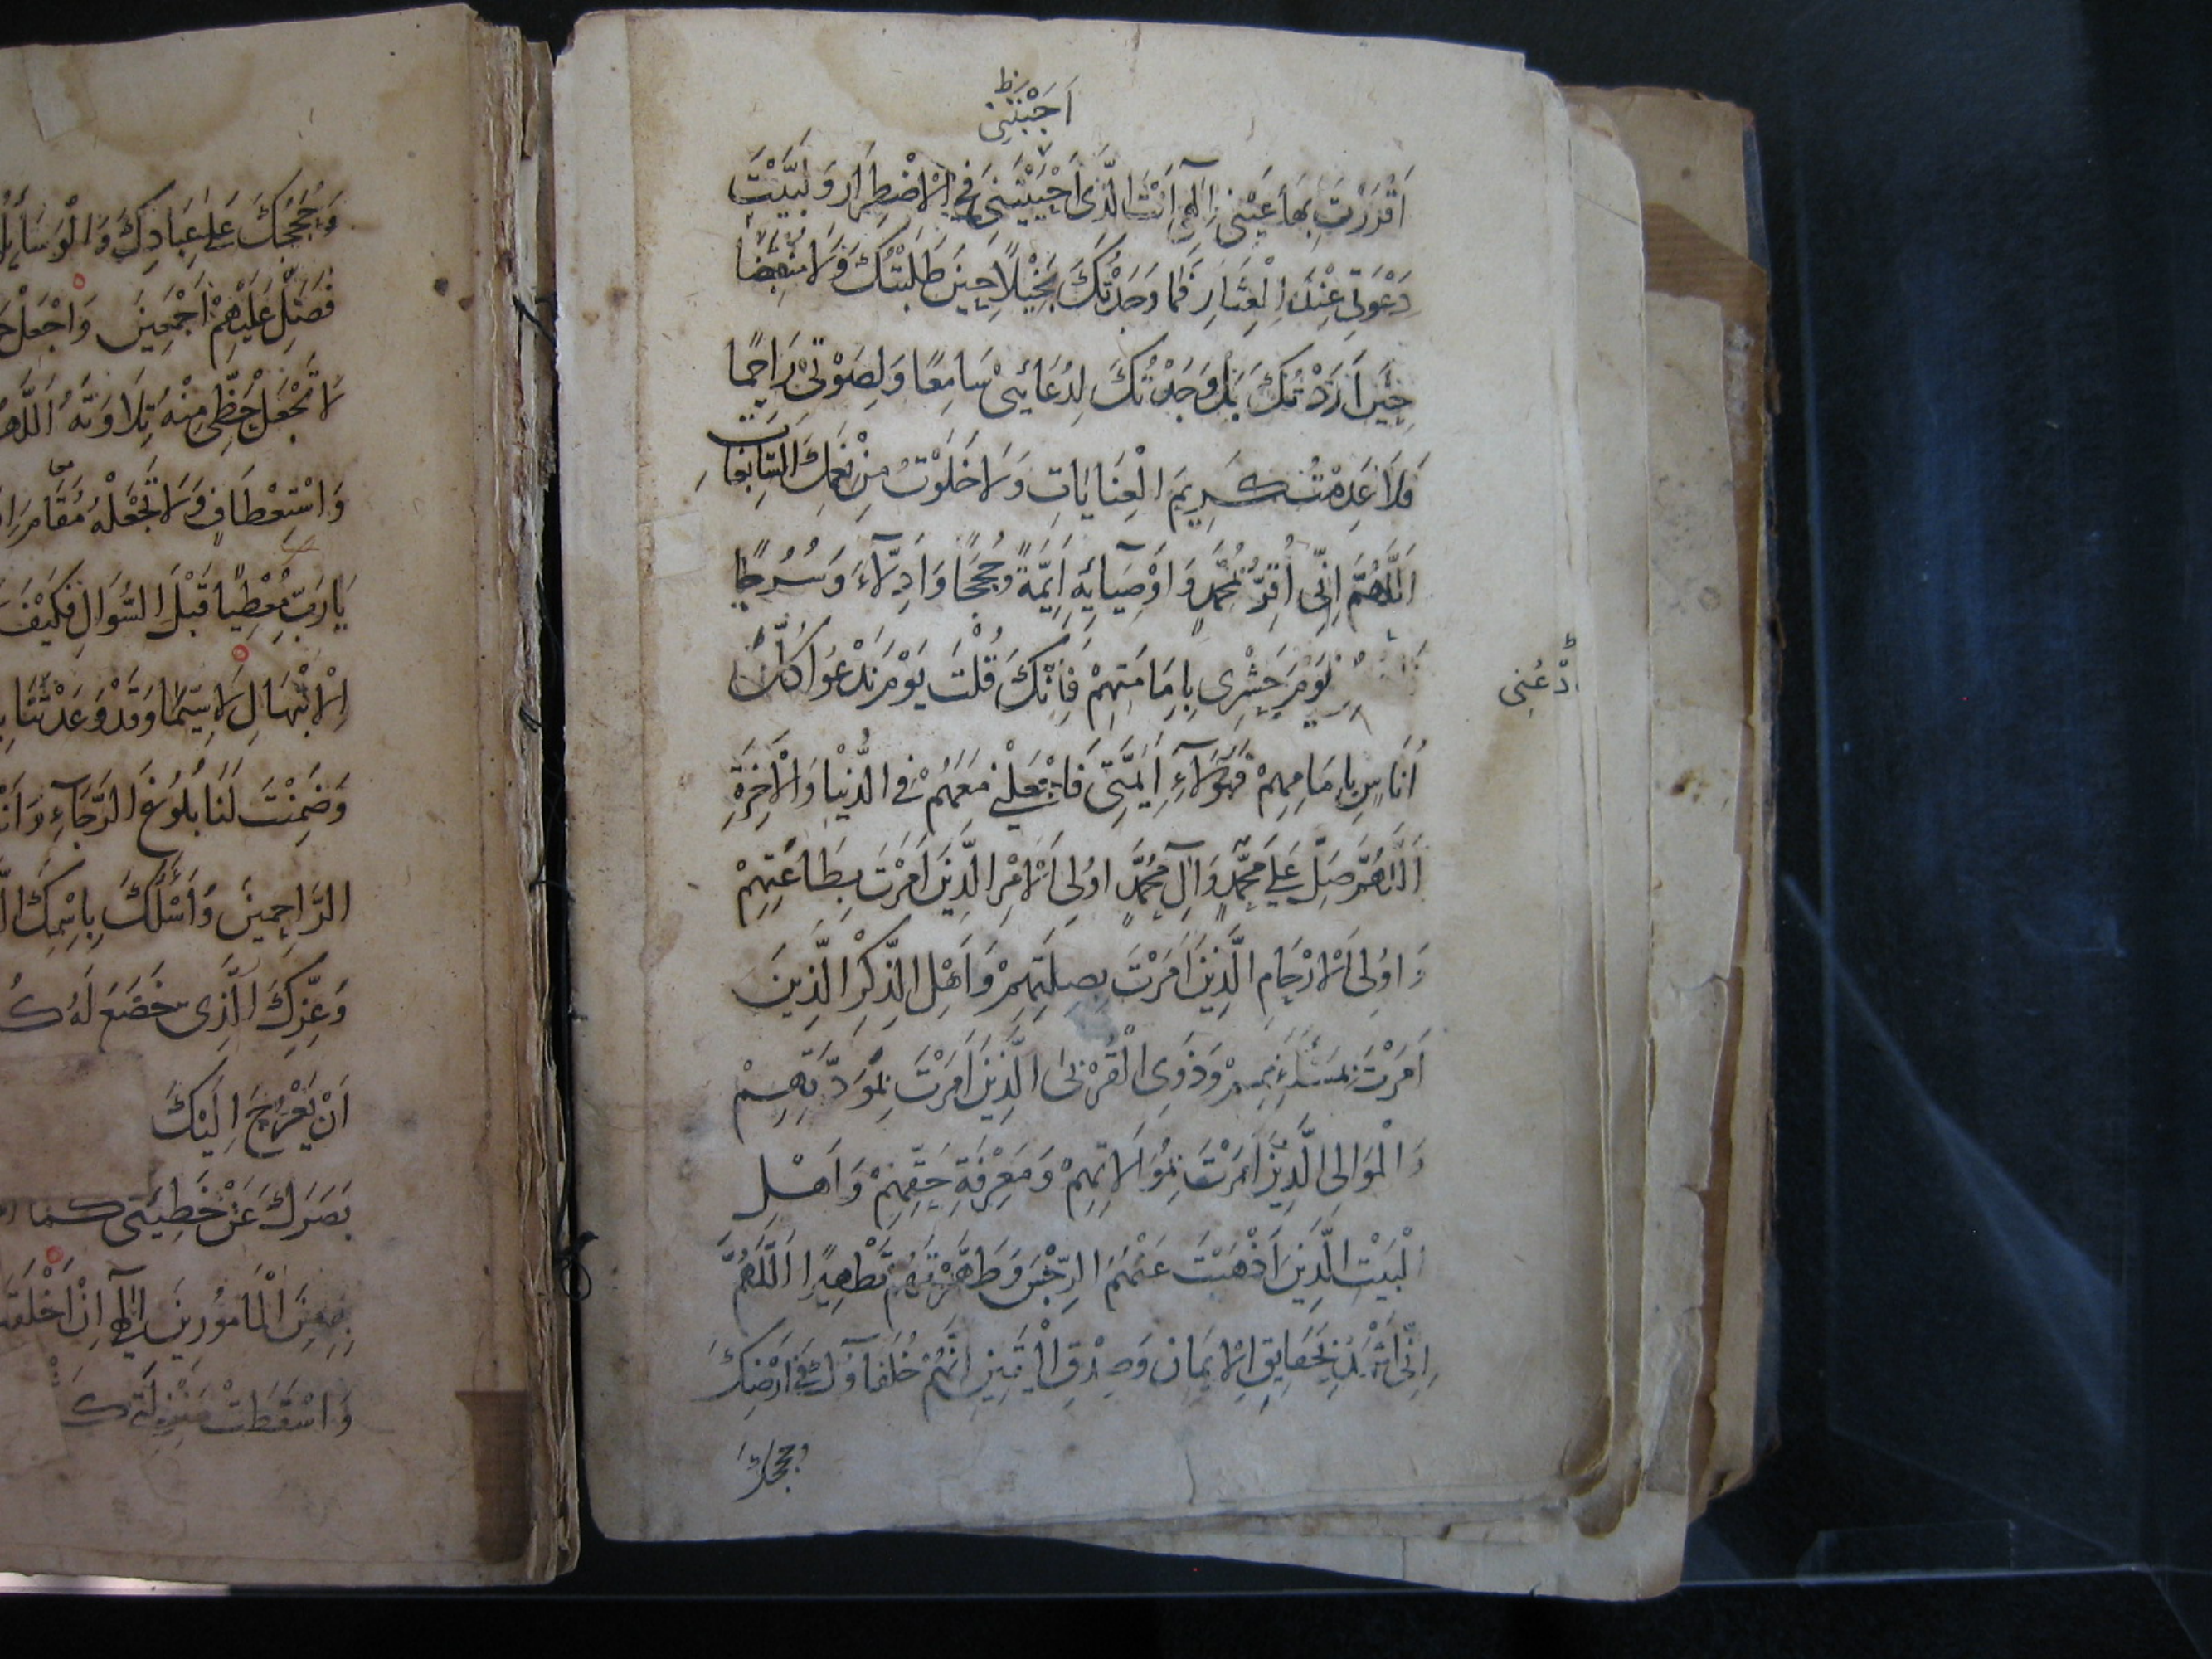 اَجَبْتَنِی ظ
اَقْرَرْتَ بِهَا عَيْنِی اِلٰهِی اَنْتَ الَّذِی اَجْبَيْتَنِی فِی الْاِضْطِرَارِ وَ لَبَّيْتَ
دَعْوَتِی عِنْدَ الْعِثَارِ فَمَا وَجَدْتُكَ بَخِيْلًا حِيْنَ طَلَبْتُكَ وَ لَا مُنْقَبِضًا
حِيْنَ اَرَدْتُكَ بَلْ وَجَدْتُكَ لِدُعَائِیْ سَامِعًا وَ لِصَوْتِیْ رَاحِمًا
فَلَا عَدِمْتُ كَرِيمَ الْعِنَايَاتِ وَ لَا خَلَوْتُ مِنْ نِعَمِكَ السَّابِغَاتِ
اَللّٰهُمَّ اِنِّی اُقِرُّ بِمُحَمَّدٍ وَ اَوْصِيَائِهِ اَئِمَّةً وَ حُجَجًا وَ اَدِلَّآءَ وَ سُرُجًا
يَوْمَ حَشْرِی بِاِمَامَتِهِمْ فَاِنَّكَ قُلْتَ يَوْمَ نَدْعُوا كُلَّ
ادْعُنِی
اُنَاسٍ بِاِمَامِهِمْ فَهٰؤُلَآءِ اَئِمَّتِی فَاجْعَلْنِی مَعَهُمْ فِی الدُّنْيَا وَ الْاٰخِرَةِ
اَللّٰهُمَّ صَلِّ عَلٰی مُحَمَّدٍ وَ اٰلِ مُحَمَّدٍ اُولِی الْاَمْرِ الَّذِيْنَ اَمَرْتَ بِطَاعَتِهِمْ
وَ اُولِی الْاَرْحَامِ الَّذِيْنَ اَمَرْتَ بِصِلَتِهِمْ وَ اَهْلِ الذِّكْرِ الَّذِينَ
اَمَرْتَ بِمَسْئَلَتِهِمْ وَ ذَوِی الْقُرْبٰی الَّذِيْنَ اَمَرْتَ بِمَوَدَّتِهِمْ
وَ الْمَوَالِی الَّذِيْنَ اَمَرْتَ بِمُوَالَاتِهِمْ وَ مَعْرِفَةِ حَقِّهِمْ وَ اَهْلِ
الْبَيْتِ الَّذِيْنَ اَذْهَبْتَ عَنْهُمُ الرِّجْسَ وَ طَهَّرْتَهُمْ تَطْهِيْرًا اَللّٰهُمَّ
اِنِّی اَشْهَدُ بِحَقَايِقِ الْاِيمَانِ وَ صِدْقِ الْيَقِيْنِ اَنَّهُمْ خُلَفَآؤُكَ فِی اَرْضِكَ
وَ حُجَجُكَ عَلٰی عِبَادِكَ وَ الْوَسَائِلُ
فَصَلِّ عَلَيْهِمْ اَجْمَعِيْنَ وَ اجْعَلْ
لَا تَجْعَلْ حَظِّی مِنْهُ تِلَاوَتَهُ اَللّٰهُمَّ
وَ اسْتِعْطَافٍ وَ لَا تَجْعَلْهُ مُقَامَ
يَا رَبِّ مُعْطِيًا قَبْلَ السُّوَالِ فَكَيْفَ
الْاِبْتِهَالِ لَا سِيَّمَا وَ قَدْ وَعَدْتَنَا
وَ ضَمِنْتَ لَنَا بُلُوغَ الرَّجَآءِ وَ اَنْتَ
الرَّاحِمِينَ وَ اَسْئَلُكَ بِاسْمِكَ
وَ عِزِّكَ الَّذِی خَضَعَ لَهُ كُ
اَنْ يَعْرُجَ اِلَيْكَ
بَصَرَكَ عَنْ خَطِيئَتِی كَمَا
مِنَ الْمَامُورِينَ اِلٰهِی اِنْ اَخْلَقَتْ
وَ اَسْقَطَتْ مَنْزِلَتِی